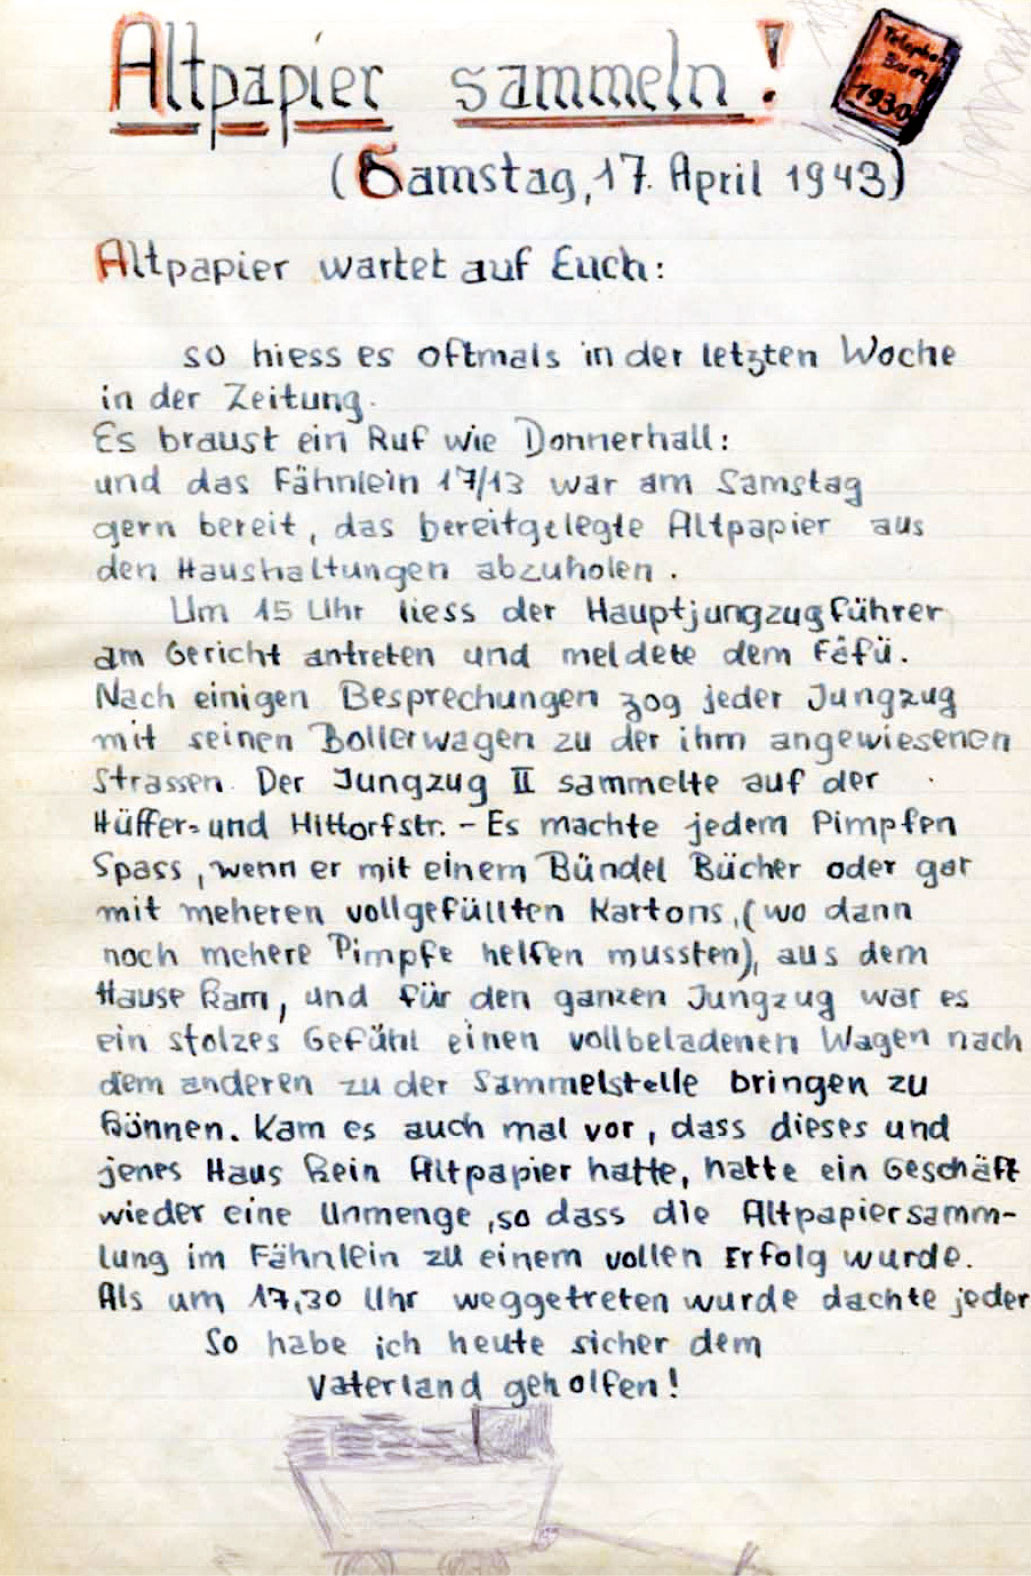 Altpapier sammeln!
Telephon
Buch
1930
(Samstag, 17. April 1943)
Altpapier wartet auf Euch:
so hiess es oftmals in der letzten Woche
in der Zeitung.
Es braust ein Ruf wie Donnerhall:
und das Fähnlein 17/13 war am Samstag
gern bereit, das bereitgelegte Altpapier aus
den Haushaltungen abzuholen.
Um 15 Uhr liess der Hauptjungzugführer
am Gericht antreten und meldete dem Fäfü.
Nach einigen Besprechungen zog jeder Jungzug
mit seinen Bollerwagen zu der ihm angewiesenen
Strassen. Der Jungzug II sammelte auf der
Hüffer= und Hittorfstr. - Es machte jedem Pimpfen
Spass, wenn er mit einem Bündel Bücher oder gar
mit meheren vollgefüllten Kartons, (wo dann
noch mehere Pimpfe helfen mussten), aus dem
Hause kam, und für den ganzen Jungzug war es
ein stolzes Gefühl einen vollbeladenen Wagen nach
dem anderen zu der Sammelstelle bringen zu
können. Kam es auch mal vor, dass dieses und
jenes Haus kein Altpapier hatte, hatte ein Geschäft
wieder eine Unmenge, so dass die Altpapiersamm-
lung im Fähnlein zu einem vollen Erfolg wurde.
Als um 17,30 Uhr weggetreten wurde dachte jeder
So habe ich heute sicher dem
Vaterland geholfen!